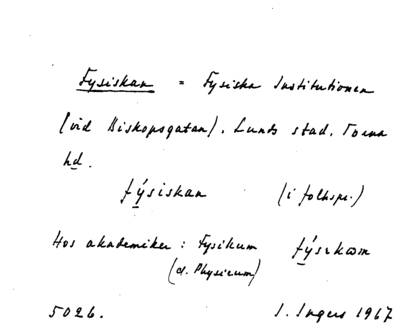 Fysiskan = Fysiska Institutionen
(vid Biskopsgatan). Lunds stad. Torna
hd.
fýsiskan (i folkspr.)
Hos akademiker: Fysikum fýsɪkɷm
(d. Physicum)
5026. I. Ingers 1967